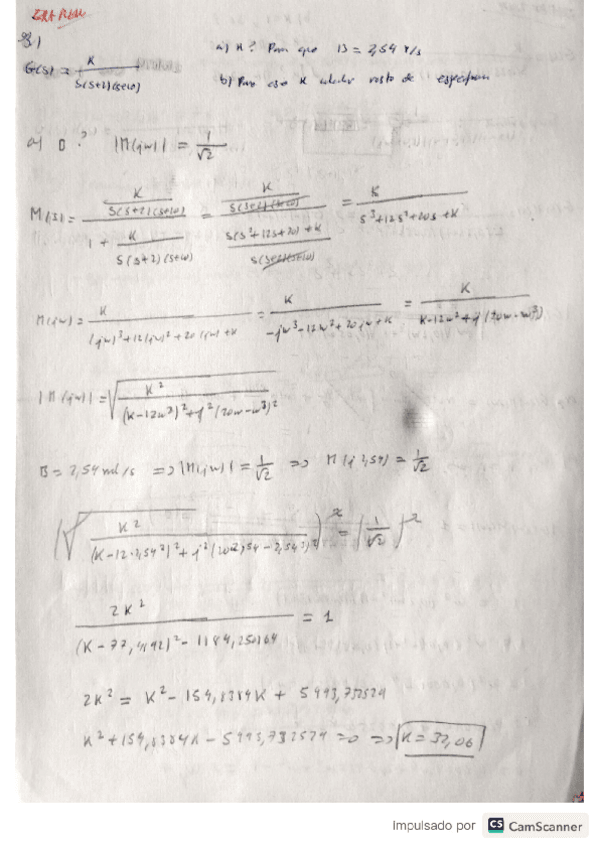 8)
G(s) = K / S(s+2)(s+10)
a) K? Para que B = 2,54 r/s
b) Para ese K calcular resto de
a) B? |M(jw)| = 1/√2
M(s) = (K / S(s+2)(s+10)) / (1 + K / S(s+2)(s+10)) = (K / S(s+2)(s+10)) / ((S(s²+12s+20)+K) / S(s+2)(s+10)) = K / (s³+12s²+20s+K)
M(jw) = K / ((jw)³+12(jw)²+20(jw)+K) = K / (-jw³-12w²+20jw+K) = K / (K-12w²+j(20w-w³))
|M(jw)| = √(K² / ((K-12w²)²+j²(20w-w³)²))
B = 2,54 rad/s => |M(jw)| = 1/√2 => M(j2,54) = 1/√2
(√(K² / ((K-12·2,54²)²+j²(20·2,54-2,54³)²)))² = (1/√2)²
2K² / ((K-77,4192)²-1184,250164) = 1
2K² = K² - 154,8384K +
K² + 154,8384K - = 0 => K = 32,06
Impulsado por CS CamScanner